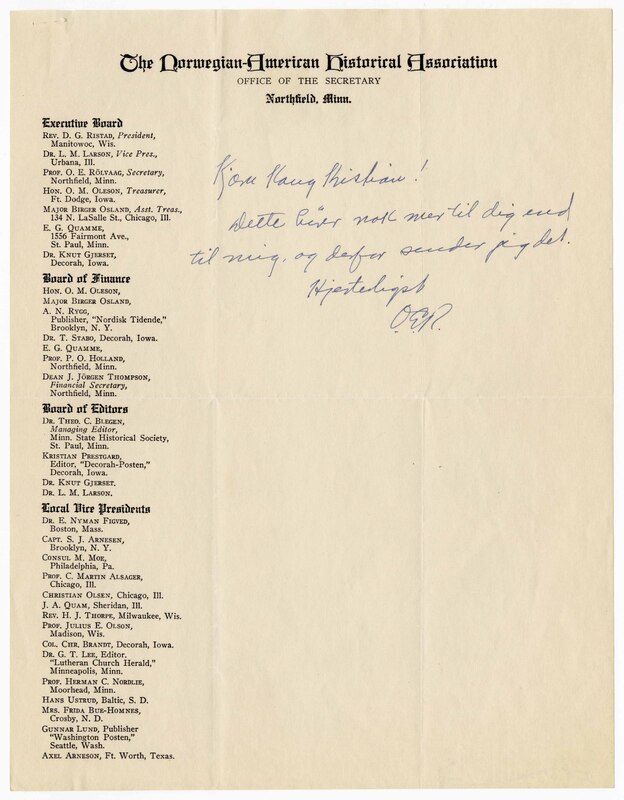 The Norwegian-American Historical Association
OFFICE OF THE SECRETARY
Northfield, Minn.
Executive Board
REV. D. G. RISTAD, President,
Manitowoc, Wis.
DR. L. M. LARSON, Vice Pres.,
Urbana, Ill.
PROF. O. E. RÖLVAAG, Secretary,
Northfield, Minn.
HON. O. M. OLESON, Treasurer,
Ft. Dodge, Iowa.
MAJOR BIRGER OSLAND, Asst. Treas.,
134 N. LaSalle St., Chicago, Ill.
E. G. QUAMME,
1556 Fairmont Ave.,
St. Paul, Minn.
DR. KNUT GJERSET,
Decorah, Iowa.
Board of Finance
HON. O. M. OLESON,
MAJOR BIRGER OSLAND,
A. N. RYGG,
Publisher, "Nordisk Tidende,"
Brooklyn, N. Y.
DR. T. STABO, Decorah, Iowa.
E. G. QUAMME,
PROF. P. O. HOLLAND,
Northfield, Minn.
DEAN J. JÖRGEN THOMPSON,
Financial Secretary,
Northfield, Minn.
Board of Editors
DR. THEO. C. BLEGEN,
Managing Editor,
Minn. State Historical Society,
St. Paul, Minn.
KRISTIAN PRESTGARD,
Editor, "Decorah-Posten,"
Decorah, Iowa.
DR. KNUT GJERSET.
DR. L. M. LARSON.
Local Vice Presidents
DR. E. NYMAN FIGVED,
Boston, Mass.
CAPT. S. J. ARNESEN,
Brooklyn, N. Y.
CONSUL M. MOE,
Philadelphia, Pa.
PROF. C. MARTIN ALSAGER,
Chicago, Ill.
CHRISTIAN OLSEN, Chicago, Ill.
J. A. QUAM, Sheridan, Ill.
REV. H. J. THORPE, Milwaukee, Wis.
PROF. JULIUS E. OLSON,
Madison, Wis.
COL. CHR. BRANDT, Decorah, Iowa.
DR. G. T. LEE, Editor.
"Lutheran Church Herald,"
Minneapolis, Minn.
PROF. HERMAN C. NORDLIE,
Moorhead, Minn.
HANS USTRUD, Baltic, S. D.
MRS. FRIDA BUE-HOMNES,
Crosby, N. D.
GUNNAR LUND, Publisher
"Washington Posten,"
Seattle, Wash.
AXEL ARNESON, Ft. Worth, Texas.
Kjære Kong Kristian!
Dette hører nok mer til dig end
til mig, og derfor sender jeg det.
Hjerteligst
O.E.R.